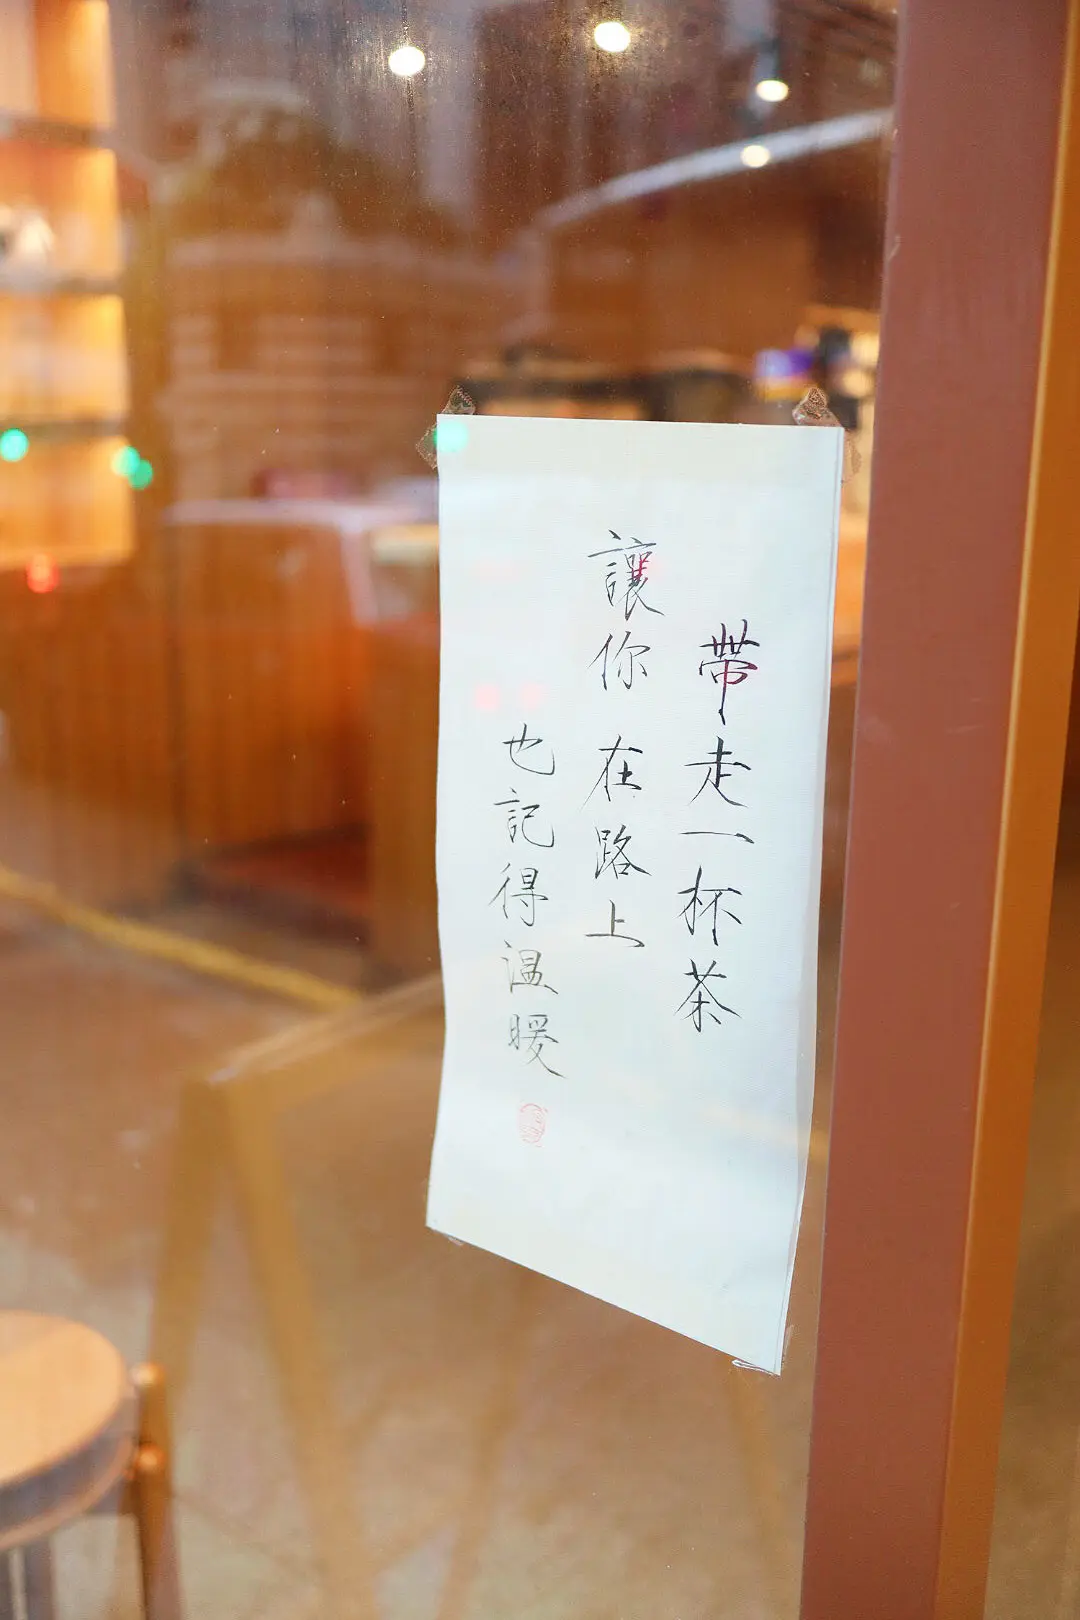 帶走一杯茶
讓你在路上
也記得温暖